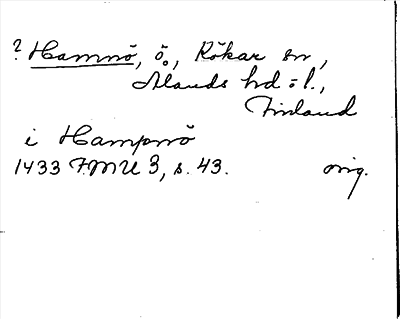 ? Hamnö, ö., Kökar sn,
Ålands hd o l.,
Finland
i Hampnö
1433 FMU 3, s. 43. orig.